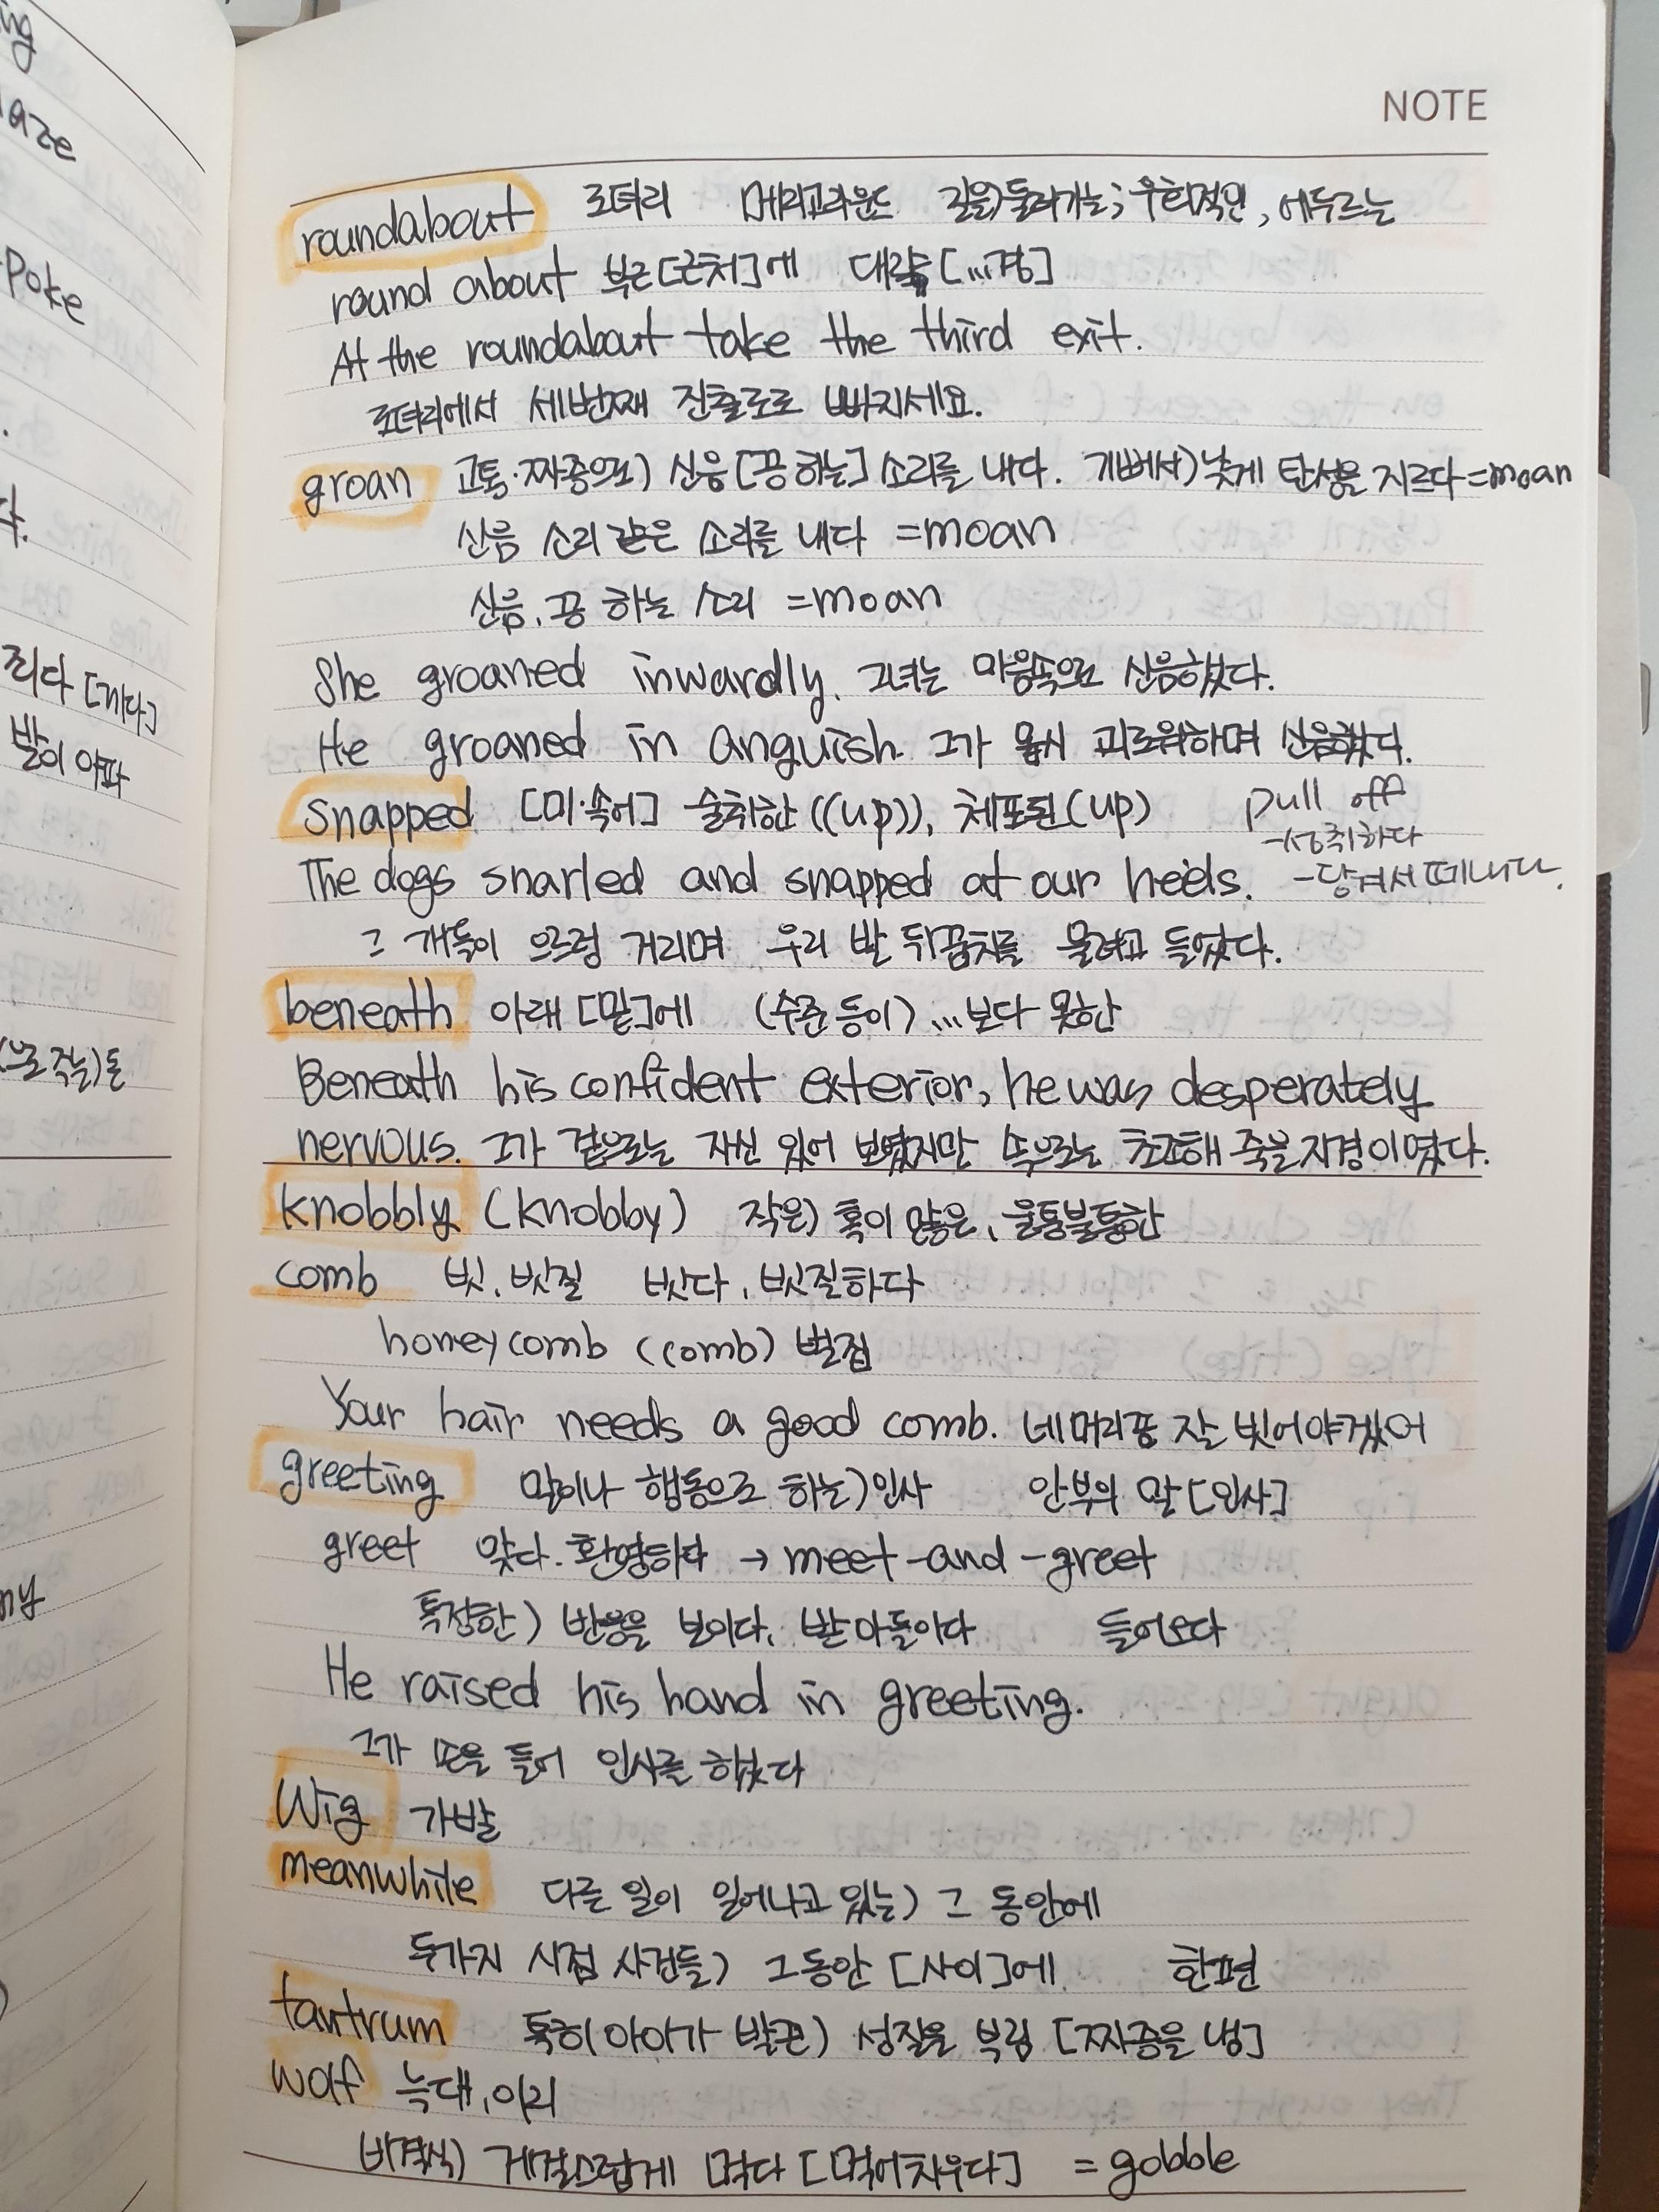 ng
aze
Poke
.
다.
죄다 [끼다]
발이 아파
ny
NOTE
roundabout 로터리 메리고라운드 길을)둘러가는; 우회적인, 에두르는
round about 부근[근처]에 대략[...경]
At the roundabout take the third exit.
로터리에서 세번째 진출로로 빠지세요.
groan 고통·짜증으로) 신음[끙 하는] 소리를 내다. 기뻐서) 낮게 탄성을 지르다 =moan
신음 소리 같은 소리를 내다 =moan
신음, 끙 하는 소리 =moan
She groaned inwardly. 그녀는 마음속으로 신음했다.
He groaned in anguish. 그가 몹시 괴로워하며 신음했다.
snapped [미·속어] 술취한((up)), 체포된(up) pull off
-성취하다
The dogs snarled and snapped at our heels. -당겨서 떼내다.
그 개들이 으르렁 거리며 우리 발 뒤꿈치를 물려고 들었다.
beneath 아래[밑]에 (수준 등이) ...보다 못한
Beneath his confident exterior, he was desperately
nervous. 그가 겉으로는 자신 있어 보였지만 속으로는 초조해 죽을 지경이였다.
knobbly (knobby) 작은) 혹이 많은, 울퉁불퉁한
comb 빗, 빗질 빗다, 빗질하다
honeycomb (comb) 벌집
Your hair needs a good comb. 네 머리 좀 잘 빗어야겠어
greeting 말이나 행동으로 하는)인사 안부의 말[인사]
greet 맞다. 환영하다 → meet-and-greet
특정한) 반응을 보이다, 받아들이다 들어오다
He raised his hand in greeting.
그가 손을 들어 인사를 했다
Wig 가발
meanwhile 다른 일이 일어나고 있는) 그 동안에
두가지 시점 사건들) 그동안[사이]에 한편
tantrum 특히 아이가 발끈) 성질을 부림 [짜증을 냄]
wolf 늑대, 이리
비격식) 게걸스럽게 먹다 [먹어치우다] = gobble